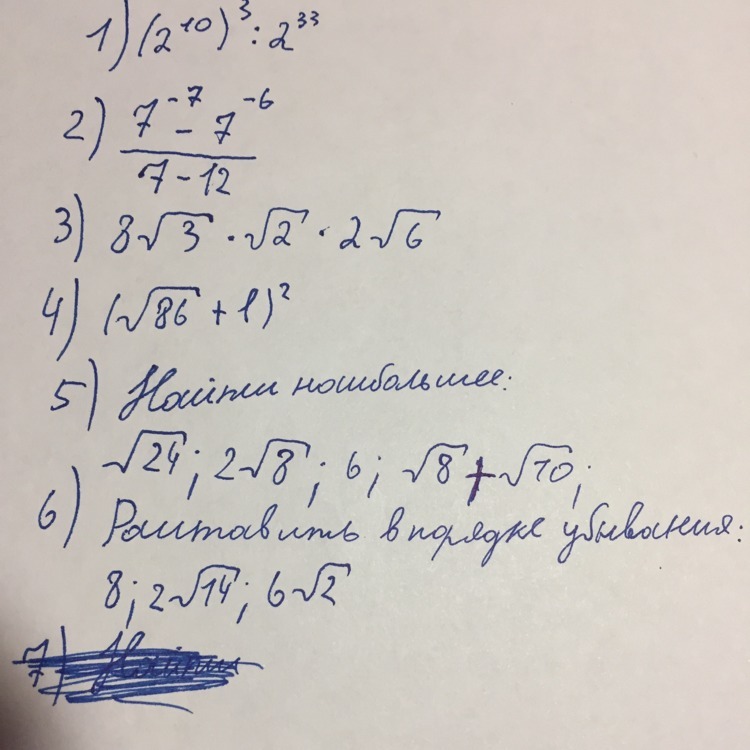 1) (2¹⁰)³ : 2³³
2) 7⁻⁷ - 7⁻⁶
7 - 12
3) 8√3 · √2 · 2√6
4) (√86 + 1)²
5) Найти наибольшее:
√24; 2√8; 6; √8 + √10;
6) Расставить в порядке убывания:
8; 2√14; 6√2
7)